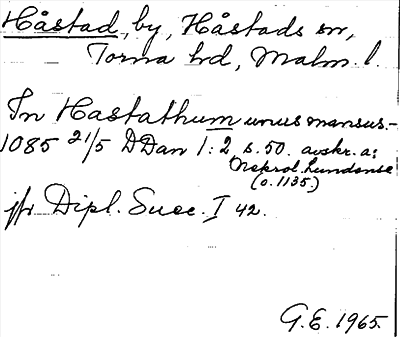 Håstad, by, Håstads sn,
Torna hd, Malm. l.
In Hastathum unus mansus.-
1085 21/5 DDan 1:2, s. 50. avskr. a:
Nekrol. Lundense
(o. 1135.)
jfr Dipl. Suec. I 42.
G.E. 1965.